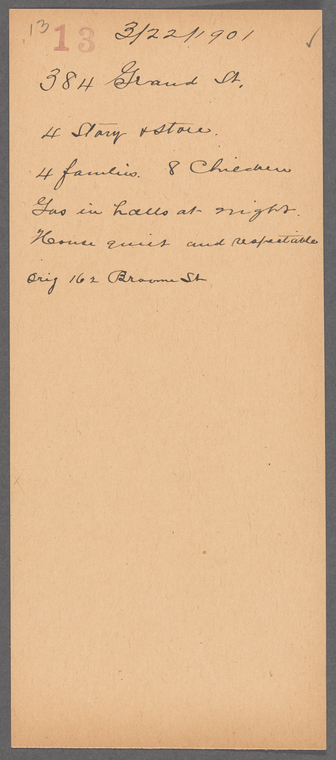 13 13 3/22/1901 ✓
384 Grand St.
4 Story & store.
4 families. 8 Children
Gas in halls at night.
House quiet and respectable
Orig 162 Broome St